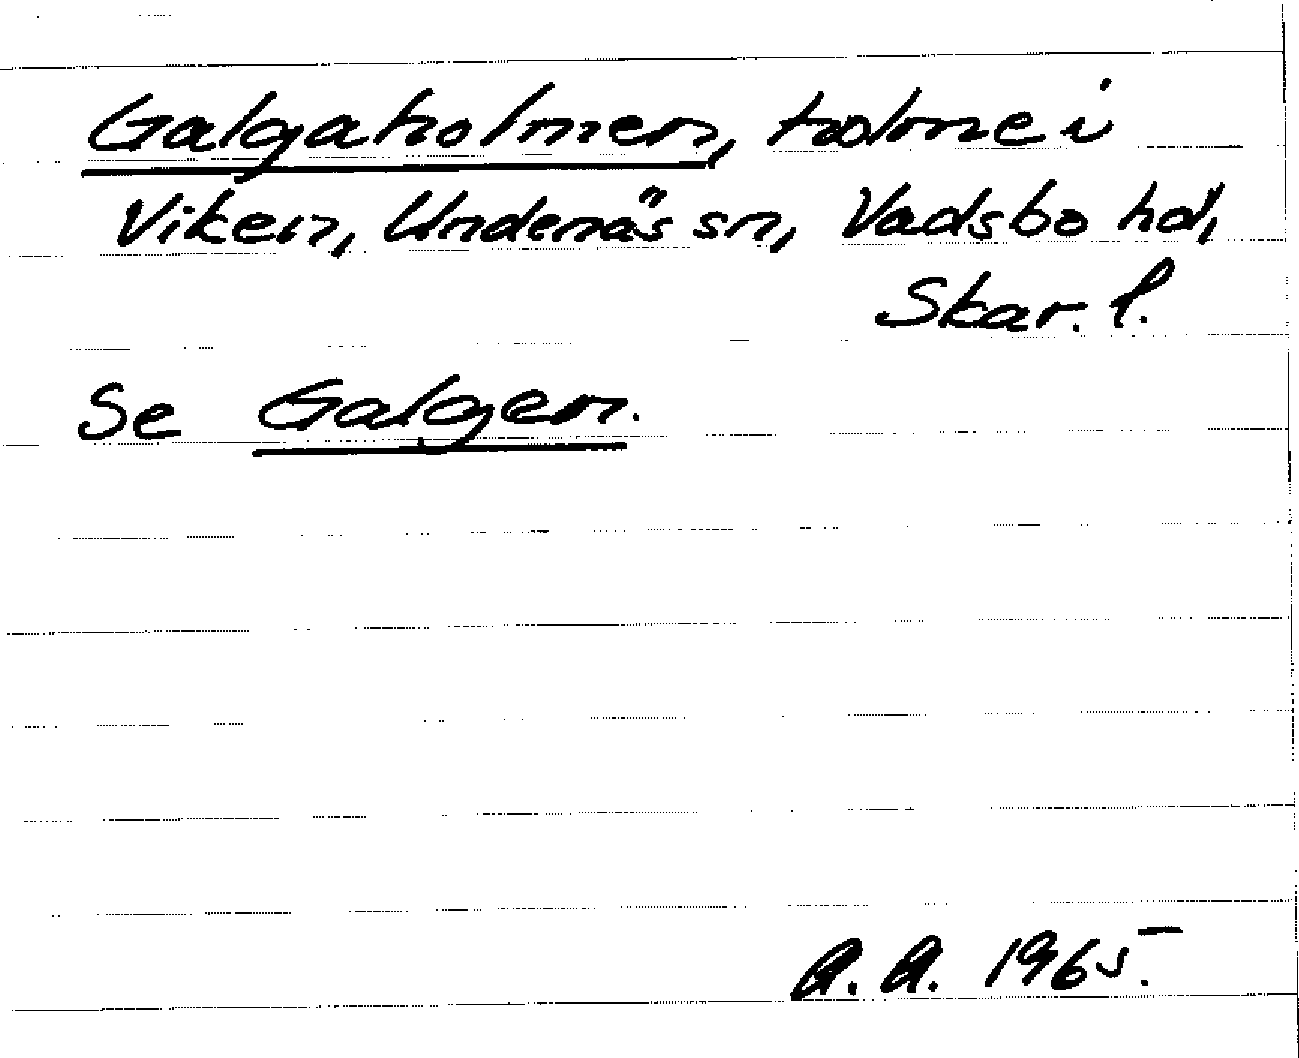 Galgaholmen, holme i
Viken, Undenäs sn, Vadsbo hd,
Skar. l.
Se Galgen.
A. A. 1965.